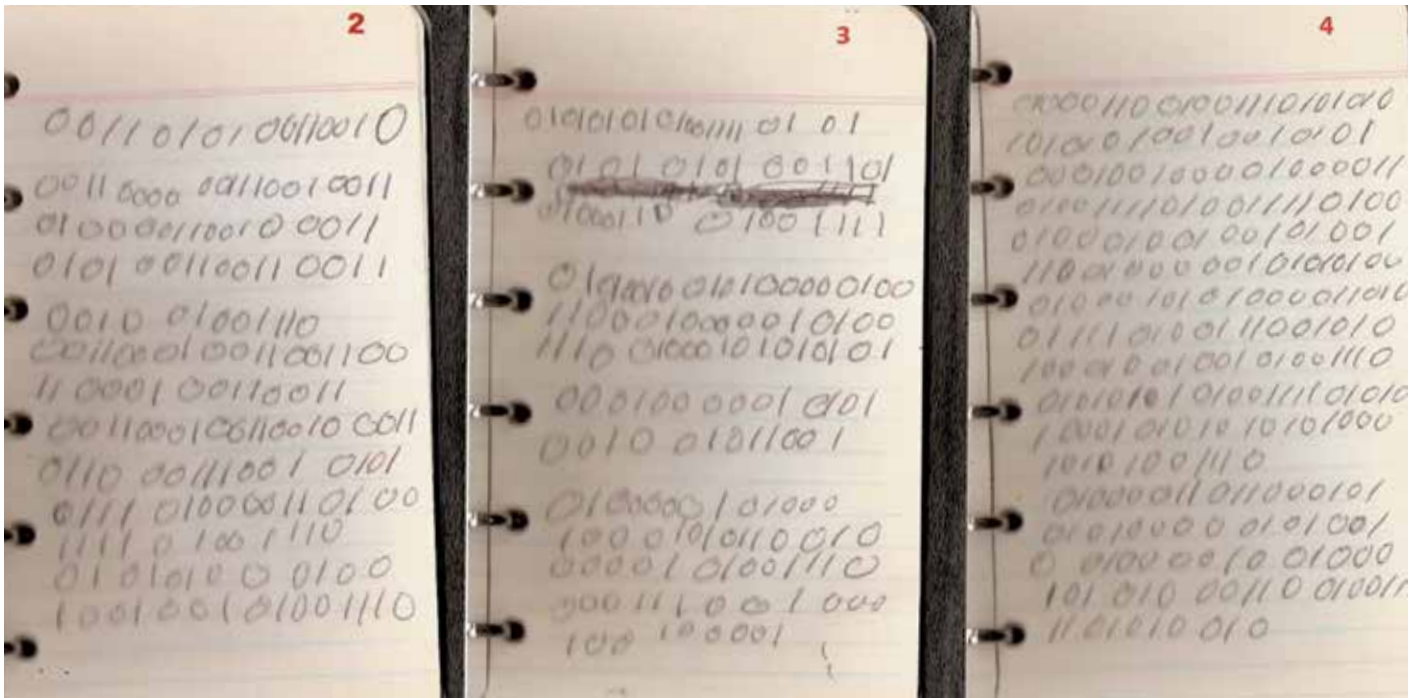 2
0011010100110010
0011 0000 00110010011
010000110010 0011
0101 00110011 0011
0010 01001110
001100010011001100
11 0001 00110011
0011000100110010 0011
0110 00111001 0101
0111 01000011 0100
1111 0 1001110
0101010 0 0100
1001001 01001110
3
0101010101001111 01 01
0101 0101 001101
01000110 01001111
0100100101000000100
1100010000010100
1110 01000101010101
000100 0001 0101
0010 01011001
0100000101000
1000101011 0010
000010 1001110
000111 0 01 000
100 100001
4
01000110 010011101010 10
10101010010010101
0001001000010000 11
01001111010011110100
010001001 00101001
11001000001010100
01000101010000 11010
0111101001 1001010
1000100100101001110
0101010101001111 01010
1000101010 10101000
1010 100110
0100001101 1000101
01010000 0101001
0 01000010 01000
101 010 00110 010011
1101010 010